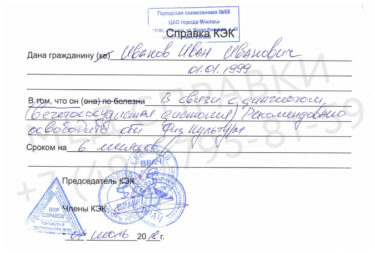 Городская поликлиника №68
ЦАО города Москвы
Справка КЭК
Дана гражданину (ке) Иванов Иван Иванович
01.01.1999
В том, что он (она) по болезни в связи с диагнозом
(Вегетососудистая дистония) Рекомендовано
освободить от физкультуры
Сроком на 6 месяцев
Председатель КЭК
ВРАЧ
ДЛЯ
СПРАВОК
Члены КЭК
ВРАЧ
июль 20 г.